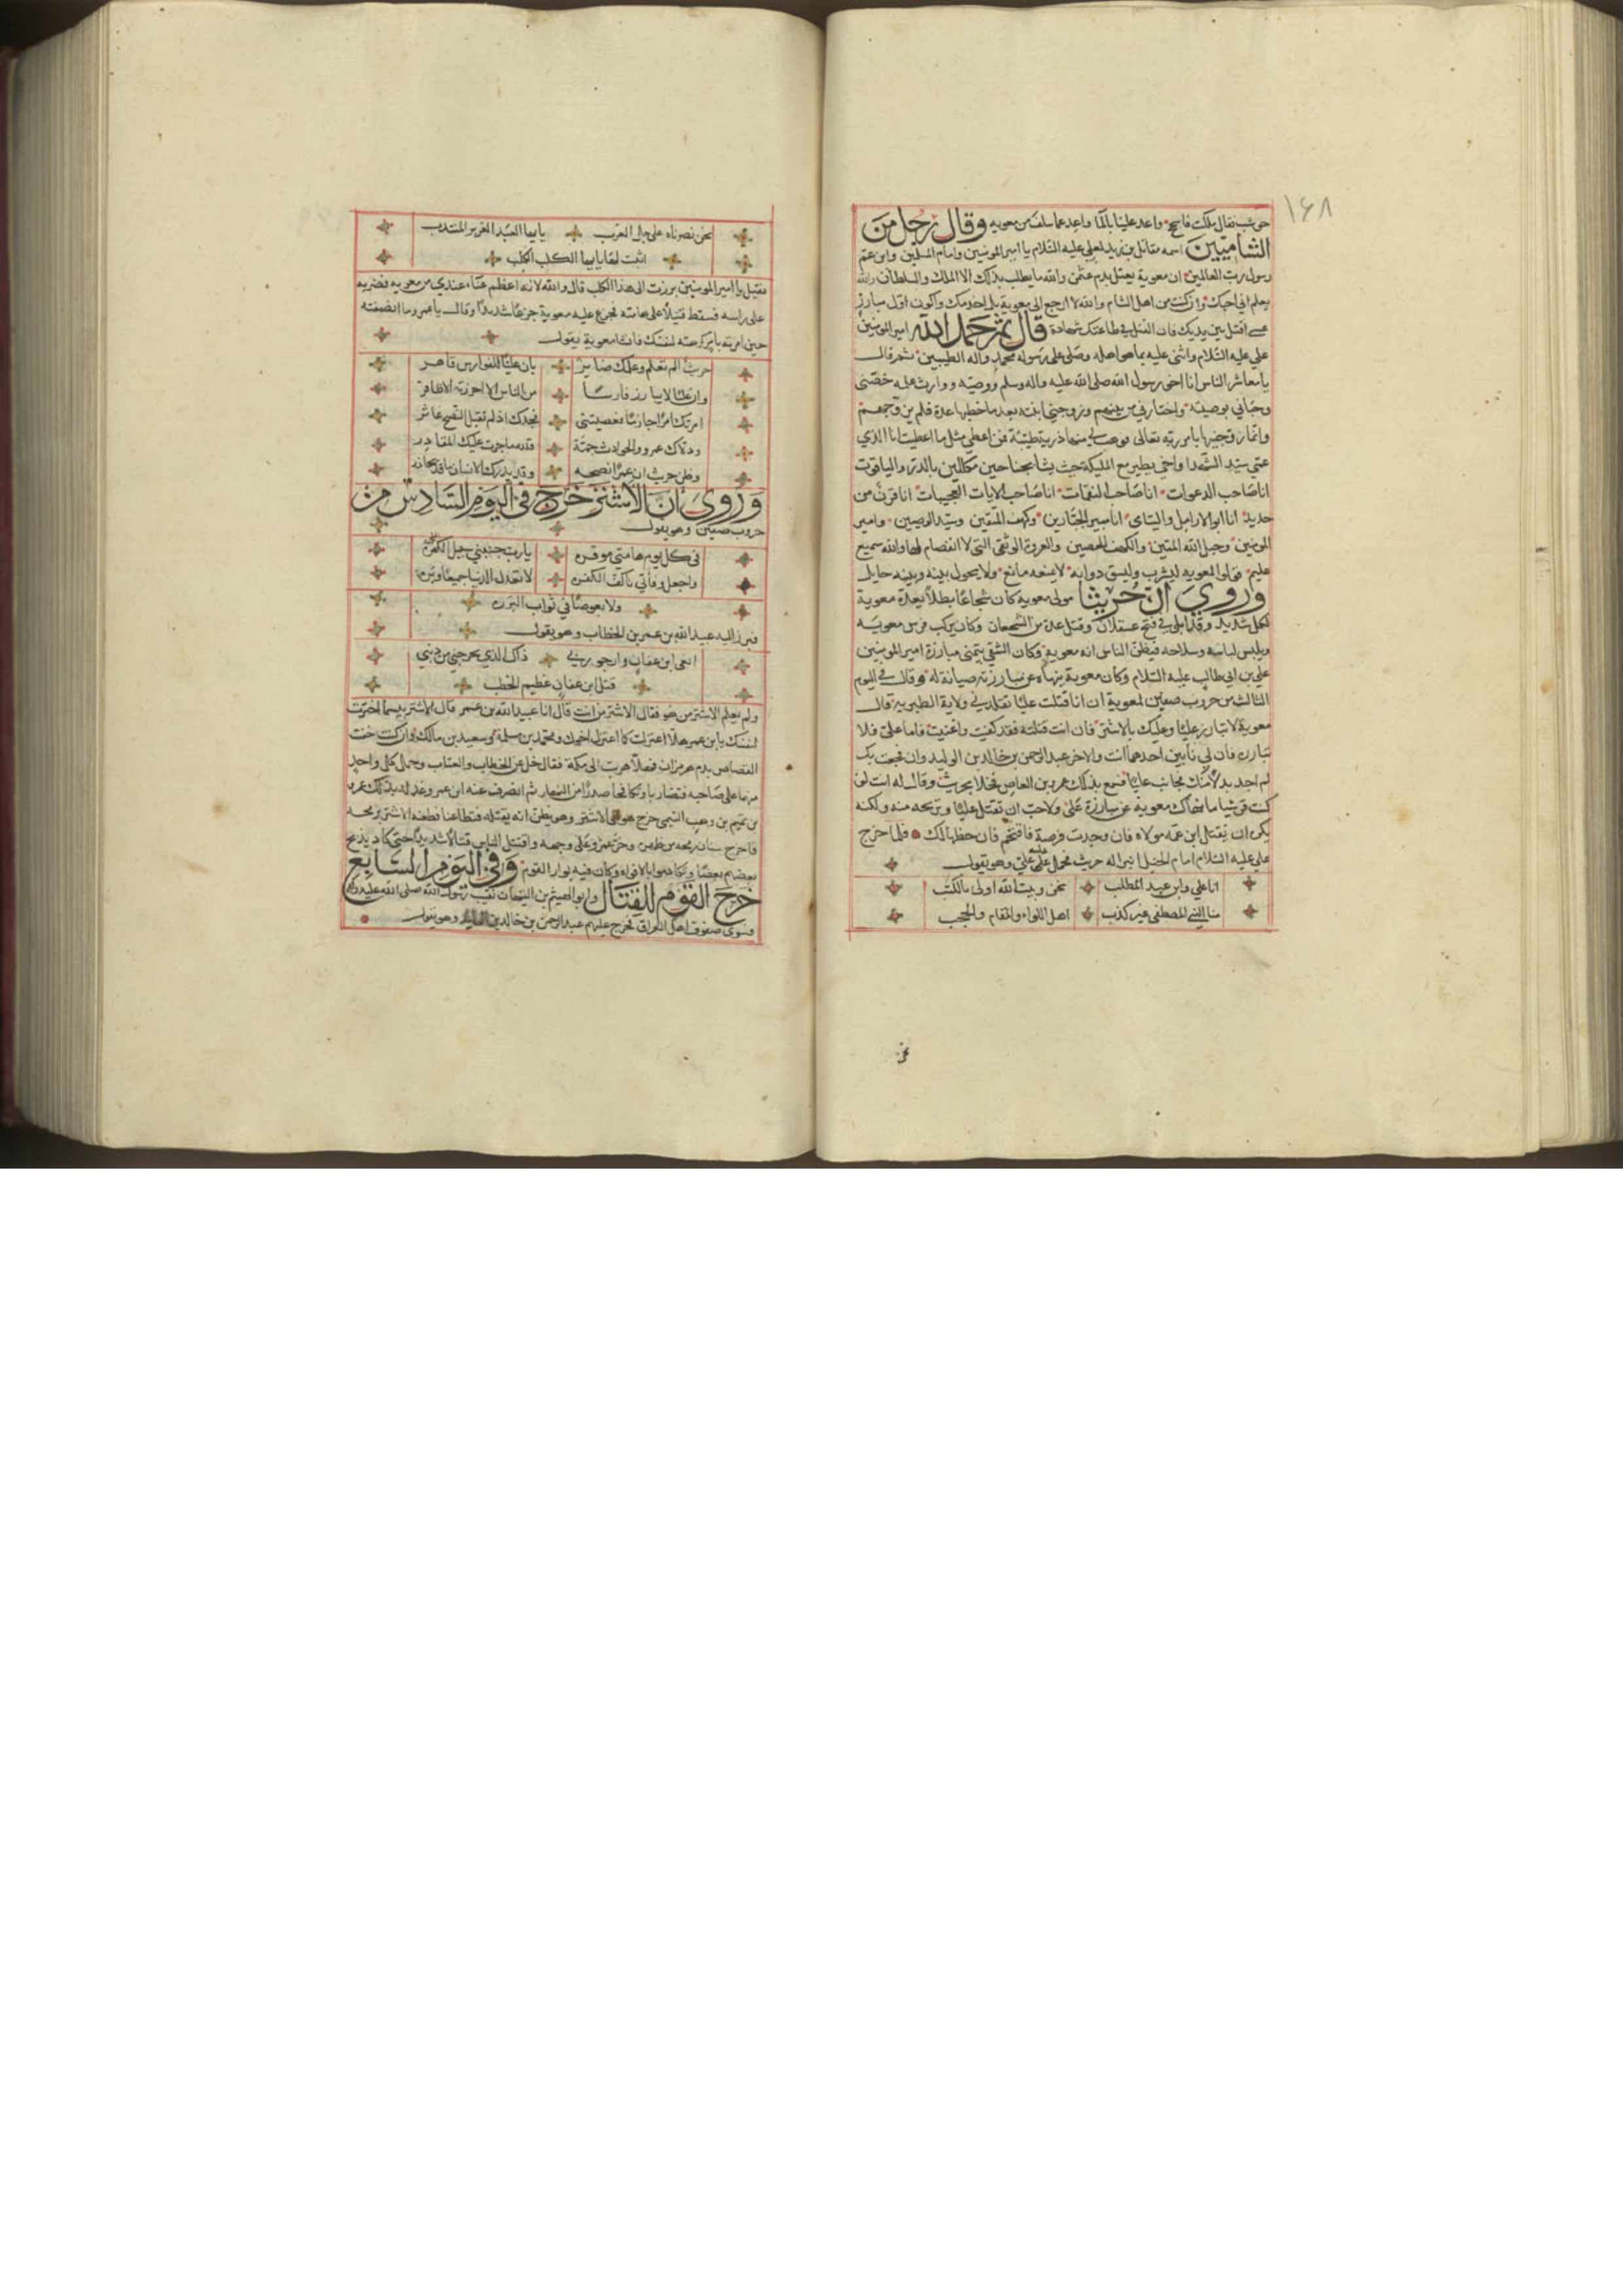 ١٦٨
حوشب فقال ملكت فاسجح واعد علينا بالما واعد عما سلف من معويه وقال رجل من
الشاميين اسمه مقاتل بن زيد لعلي عليه السلام يا امير المومنين وامام المسلمين وابن عم
رسول رب العالمين ان معوية يعتل بدم عثمن والله ما يطلب بذلك الا الملك والسلطان والله
يعلم اني احبك وان كنت من اهل الشام والله لا ارجع الى معوية بل اخدمك واكون اول مبارز
حتى اقتل بين يديك فان القتل في طاعتك شهادة قال ثم حمد الله امير المومنين
علي عليه السلام واثنى عليه بما هو اهله وصلى على رسوله محمد واله الطيبين ثم قال
يا معاشر الناس انا اخو رسول الله صلى الله عليه واله وسلم ووصيه ووارث علمه خصني
وحباني بوصيته واختارني من بينهم وزوجني ابنته بعد ما خطبها عدة فلم يزوجهم
وانما زوجنيها بامر ربه تعالى فوهب لي منها ذرية طيبة فمن اعطي مثل ما اعطيت انا الذي
عمي سيد الشهدا واخي يطير مع المليكة حيث يشا بجناحين مكللين بالدر والياقوت
انا صاحب الدعوات انا صاحب النقمات انا صاحب الايات العجيبات انا قرن من
حديد انا ابو الارامل واليتامى انا مبير الجبارين وكهف المتقين وسيد الوصيين وامير
المومنين وحبل الله المتين والكهف الحصين والعروة الوثقى التي لا انفصام لها والله سميع
عليم قولوا لمعويه ليشرب وليسق دوابه لا يمنعه مانع ولا يحول بينه وبينه حايل
وروي ان حريثا مولى معويه كان شجاعا بطلا يعده معوية
لكل شديد وقد ابلى في فتح عسقلان وقتل عدة من الشجعان وكان يركب فرس معويه
ويلبس لباسه وسلاحه فيظن الناس انه معوية وكان الشقي يتمنى مبارزة امير المومنين
علي بن ابي طالب عليه السلام وكان معوية ينهاه عن مبارزته صيانة له وقال في اليوم
الثالث من حروب صفين لمعوية ان انا قتلت عليا تقلدني ولاية الطبرية قال
معوية لا تبارز عليا وعليك بالاشتر فان انت قتلته فقد كفيت واغنيت فاما علي فلا
تبارزه فان لي نابين احدهما انت والاخر عبد الرحمن بن خالد بن الوليد وان فجعت بك
لم اجد بدلا منك فجانب عليا فسمع بذلك عمرو بن العاص فخلا بحريث وقال له انت لو
كنت قرشيا ما نهاك معوية عن مبارزة علي ولاحب ان تقتل عليا وتريحه منه ولكنه
يكره ان يقتل ابن عمه مولاه فان وجدت فرصة فاقتحم فان حظها لك فلما خرج
علي عليه السلام امام الخيل انبرا له حريث فحمل عليه علي وهو يقول
انا علي وابن عبد المطلب نحن وبيت الله اولى بالكتب
منا النبي المصطفى غير كذب اهل اللواء والمقام والحجب
نحن نصرناه على جل العرب يا ايها العبد الغرير المنتدب
اثبت لنا يا ايها الكلب الكلب
فقيل يا امير المومنين برزت الى هذا الكلب قال والله لانه اعظم عناء عندي من معويه فضربه
على راسه فسقط قتيلا على هامته فجزع عليه معوية جزعا شديدا وقال يا عمرو ما انصفته
حين امرته بامر كرهته لنفسك فانشا معوية يقول
حريث الم تعلم وعلمك ضاير بان عليا للفوارس قاهر
وان عليا لا يبارز فارسا من الناس الا احرزته الاظافر
امرتك امرا حازما فعصيتني فجدك اذ لم تقبل النصح عاثر
ودلاك عمرو والحوادث جمة فلله ما جرت عليك المقادر
وظن حريث ان عمرا نصيحه وقد يدرك الانسان ما قد يحاذر
وروي ان الاشتر خرج في اليوم السادس من
حروب صفين وهو يقول
في كل يوم هامتي موقره يا رب جنبني سبيل الكفره
واجعل وفاتي باكف الكفره لا تعدل الدنيا جميعا وبره
ولا بعوضا في ثواب البرره
فبرز اليه عبيد الله بن عمر بن الخطاب وهو يقول
انعى ابن عفان وارجو ربي ذاك الذي يخرجني من ذنبي
قتل ابن عفان عظيم الخطب
ولم يعلم الاشتر من هو فقال الاشتر من انت قال انا عبيد الله بن عمر قال الاشتر بيسما اخترت
لنفسك يا بن عمر هلا اعتزلت كما اعتزل اخوك ومحمد بن مسلمة وسعيد بن مالك وان كنت خفت
القصاص بدم هرمزان فهلا هربت الى مكة فقال خل عن الخطاب والعتاب وحمل كل واحد
منهما على صاحبه فتضاربا وتكافحا صدرا من النهار ثم انصرف عنه ابن عمر وعذله بذلك عمرو
بن تميم بن وهب التيمي خرج هو الى الاشتر وهو يظن انه يقتله فتطاعنا فطعنه الاشتر برمحه
فاخرج سنان رمحه من ظهره وخر عمرو على وجهه واقتتل الناس قتالا شديدا حتى كاد يذبح
بعضهم بعضا وتكادموا بالافواه وكان فيه بوار القوم وفي اليوم السابع
خرج القوم للقتال وابو الهيثم بن التيهان نقيب رسول الله صلى الله عليه واله
فسوى صفوف اهل العراق فخرج عليهم عبد الرحمن بن خالد بن الوليد وهو يقول
نحن